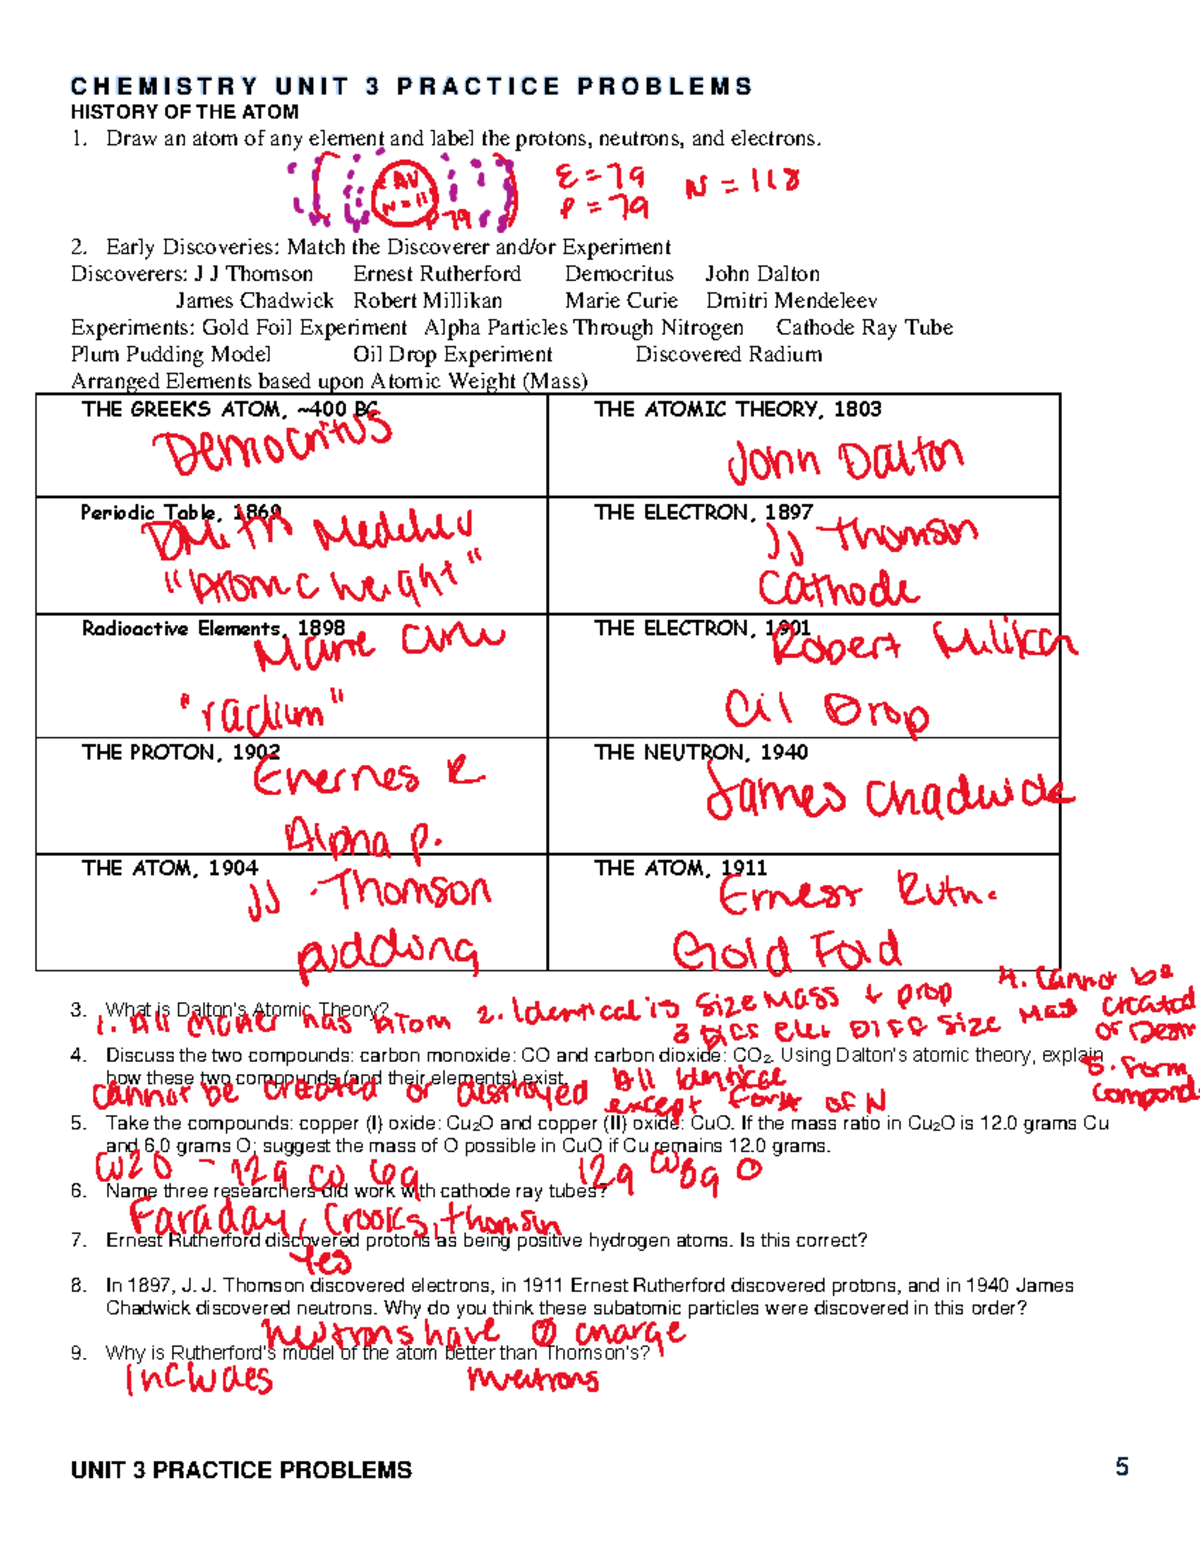 CHEMISTRY UNIT 3 PRACTICE PROBLEMS
HISTORY OF THE ATOM
1. Draw an atom of any element and label the protons, neutrons, and electrons.
AU
N = 11
P 79
E = 79
P = 79
N = 118
2. Early Discoveries: Match the Discoverer and/or Experiment
Discoverers: J J Thomson Ernest Rutherford Democritus John Dalton
James Chadwick Robert Millikan Marie Curie Dmitri Mendeleev
Experiments: Gold Foil Experiment Alpha Particles Through Nitrogen Cathode Ray Tube
Plum Pudding Model Oil Drop Experiment Discovered Radium
Arranged Elements based upon Atomic Weight (Mass)
THE GREEKS ATOM, ~400 BC
Democritus
THE ATOMIC THEORY, 1803
John Dalton
Periodic Table, 1869
Dmitri
"Atomic height"
THE ELECTRON, 1897
JJ Thomson
Cathode
Radioactive Elements, 1898
Marie
"radium"
THE ELECTRON, 1901
Robert Milikan
Oil Drop
THE PROTON, 1902
Enernes R
Alpha p.
THE NEUTRON, 1940
James Chadwick
THE ATOM, 1904
JJ Thomson
pudding
THE ATOM, 1911
Ernest Ruth.
Gold
3. What is Dalton's Atomic Theory?
1. All matter has Atom 2. Identical is size mass + prop 4. Cannot be created or
3 size mass
5. Form
4. Discuss the two compounds: carbon monoxide: CO and carbon dioxide: CO₂. Using Dalton's atomic theory, explain
how these two compounds (and their elements) exist.
cannot be created or destroyed All Identical
except for # of N
5. Take the compounds: copper (I) oxide: Cu₂O and copper (II) oxide: CuO. If the mass ratio in Cu₂O is 12.0 grams Cu
and 6.0 grams O; suggest the mass of O possible in CuO if Cu remains 12.0 grams.
Cu2O - 12g Cu 6g 12g Cu 8g O
6. Name three researchers did work with cathode ray tubes?
Faraday, Crooks, thomsin
7. Ernest Rutherford discovered protons as being positive hydrogen atoms. Is this correct?
Yes
8. In 1897, J. J. Thomson discovered electrons, in 1911 Ernest Rutherford discovered protons, and in 1940 James
Chadwick discovered neutrons. Why do you think these subatomic particles were discovered in this order?
neutrons have 0 charge
9. Why is Rutherford's model of the atom better than Thomson's?
includes neutrons
UNIT 3 PRACTICE PROBLEMS
5